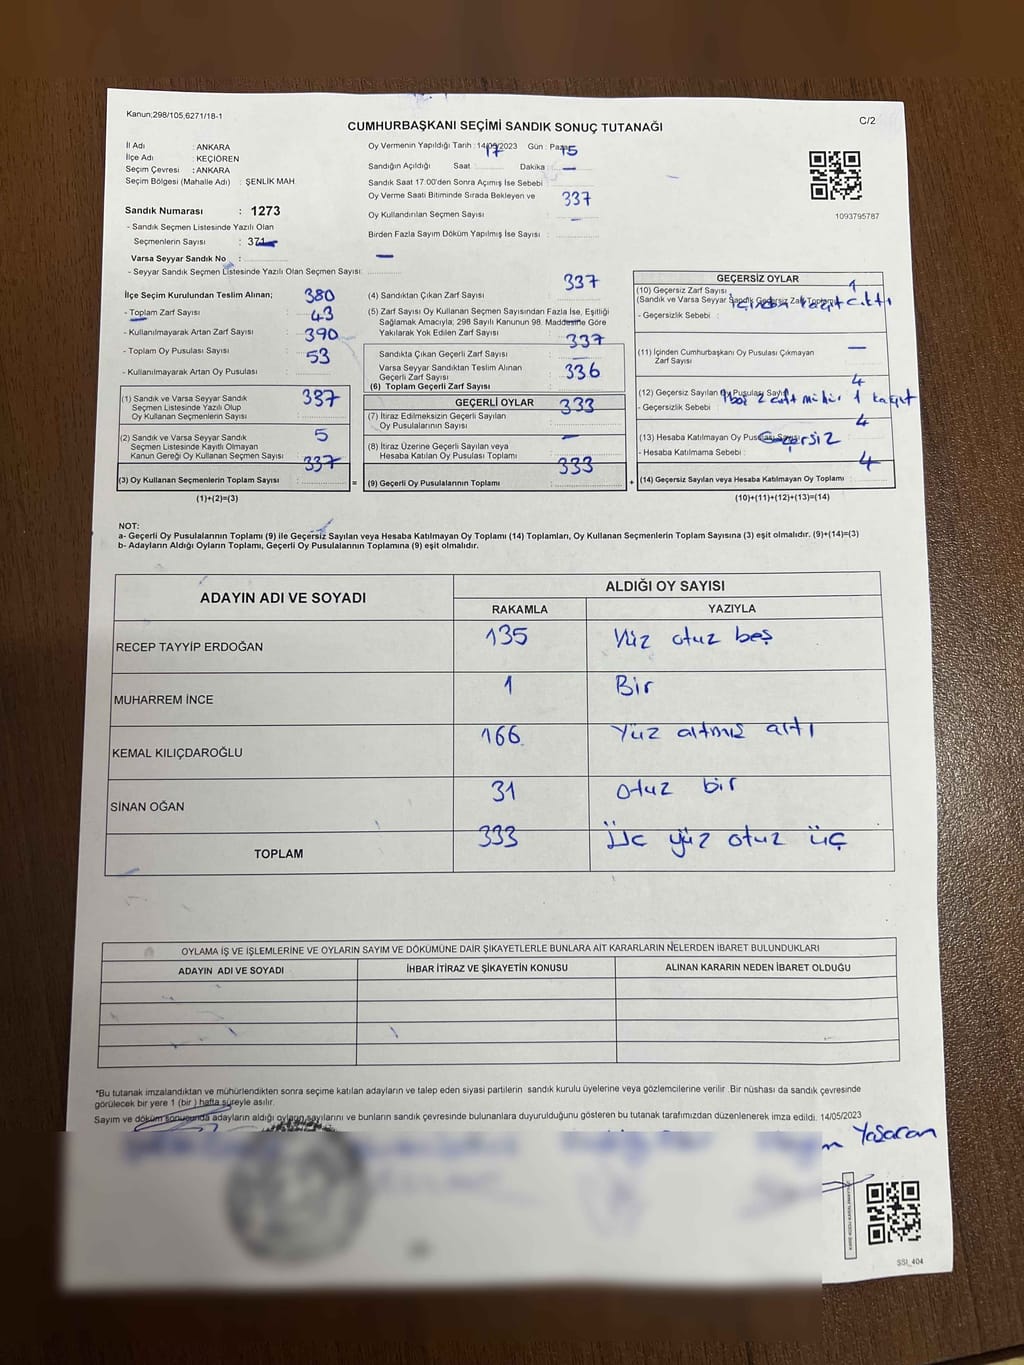 Kanun;298/105,6271/18-1
C/2
CUMHURBAŞKANI SEÇİMİ SANDIK SONUÇ TUTANAĞI
İl Adı : ANKARA
İlçe Adı : KEÇİÖREN
Seçim Çevresi : ANKARA
Seçim Bölgesi (Mahalle Adı) : ŞENLİK MAH.
Sandık Numarası : 1273
- Sandık Seçmen Listesinde Yazılı Olan
Seçmenlerin Sayısı : 371
Varsa Seyyar Sandık No :
- Seyyar Sandık Seçmen Listesinde Yazılı Olan Seçmen Sayısı:
Oy Vermenin Yapıldığı Tarih : 14/05/2023 Gün : Pazar
17 15
Sandığın Açıldığı Saat Dakika : —
Sandık Saat 17:00'den Sonra Açımış İse Sebebi
Oy Verme Saati Bitiminde Sırada Bekleyen ve
337
Oy Kullandırılan Seçmen Sayısı : —
Birden Fazla Sayım Döküm Yapılmış İse Sayısı :
—
1093795787
İlçe Seçim Kurulundan Teslim Alınan; 380
- Toplam Zarf Sayısı 43
- Kullanılmayarak Artan Zarf Sayısı 390
- Toplam Oy Pusulası Sayısı 53
- Kullanılmayarak Artan Oy Pusulası
(1) Sandık ve Varsa Seyyar Sandık 337
Seçmen Listesinde Yazılı Olup
Oy Kullanan Seçmenlerin Sayısı
(2) Sandık ve Varsa Seyyar Sandık 5
Seçmen Listesinde Kayıtlı Olmayan
Kanun Gereği Oy Kullanan Seçmen Sayısı
337
(3) Oy Kullanan Seçmenlerin Toplam Sayısı =
(1)+(2)=(3)
337
(4) Sandıktan Çıkan Zarf Sayısı
(5) Zarf Sayısı Oy Kullanan Seçmen Sayısından Fazla İse, Eşitliği
Sağlamak Amacıyla; 298 Sayılı Kanunun 98. Maddesine Göre
Yakılarak Yok Edilen Zarf Sayısı
337
Sandıkta Çıkan Geçerli Zarf Sayısı
Varsa Seyyar Sandıktan Teslim Alınan 336
Geçerli Zarf Sayısı
(6) Toplam Geçerli Zarf Sayısı
GEÇERLİ OYLAR 333
(7) İtiraz Edilmeksizin Geçerli Sayılan
Oy Pusulasının Sayısı
—
(8) İtiraz Üzerine Geçerli Sayılan veya
Hesaba Katılan Oy Pusulası Toplamı
333
(9) Geçerli Oy Pusulalarının Toplamı +
GEÇERSİZ OYLAR
(10) Geçersiz Zarf Sayısı 1
(Sandık ve Varsa Seyyar Sandık Geçersiz Zarf Toplamı)
içinden kağıt çıktı
- Geçersizlik Sebebi :
(11) İçinden Cumhurbaşkanı Oy Pusulası Çıkmayan —
Zarf Sayısı
4
(12) Geçersiz Sayılan Oy Pusulası Sayısı
1 boş 2 çift mühür 1 kağıt
- Geçersizlik Sebebi :
4
(13) Hesaba Katılmayan Oy Pusulası Sayısı
Geçersiz
- Hesaba Katılmama Sebebi :
4
(14) Geçersiz Sayılan veya Hesaba Katılmayan Oy Toplamı
(10)+(11)+(12)+(13)=(14)
NOT:
a- Geçerli Oy Pusulalarının Toplamı (9) ile Geçersiz Sayılan veya Hesaba Katılmayan Oy Toplamı (14) Toplamları, Oy Kullanan Seçmenlerin Toplam Sayısına (3) eşit olmalıdır. (9)+(14)=(3)
b- Adayların Aldığı Oyların Toplamı, Geçerli Oy Pusulalarının Toplamına (9) eşit olmalıdır.
ADAYIN ADI VE SOYADI
ALDIĞI OY SAYISI
RAKAMLA YAZIYLA
RECEP TAYYİP ERDOĞAN 135 Yüz otuz beş
MUHARREM İNCE 1 Bir
KEMAL KILIÇDAROĞLU 166 Yüz altmış altı
SİNAN OĞAN 31 otuz bir
TOPLAM 333 Üç yüz otuz üç
OYLAMA İŞ VE İŞLEMLERİNE VE OYLARIN SAYIM VE DÖKÜMÜNE DAİR ŞİKAYETLERLE BUNLARA AİT KARARLARIN NELERDEN İBARET BULUNDUKLARI
ADAYIN ADI VE SOYADI İHBAR İTİRAZ VE ŞİKAYETİN KONUSU ALINAN KARARIN NEDEN İBARET OLDUĞU
*Bu tutanak imzalandıktan ve mühürlendikten sonra seçime katılan adayların ve talep eden siyasi partilerin sandık kurulu üyelerine veya gözlemcilerine verilir .Bir nüshası da sandık çevresinde
görülecek bir yere 1 (bir ) hafta süreyle asılır.
Sayım ve döküm sonucunda adayların aldığı oyların sayılarını ve bunların sandık çevresinde bulunanlara duyurulduğunu gösteren bu tutanak tarafımızdan düzenlenerek imza edildi. 14/05/2023
Yaşaran
SSİ_404